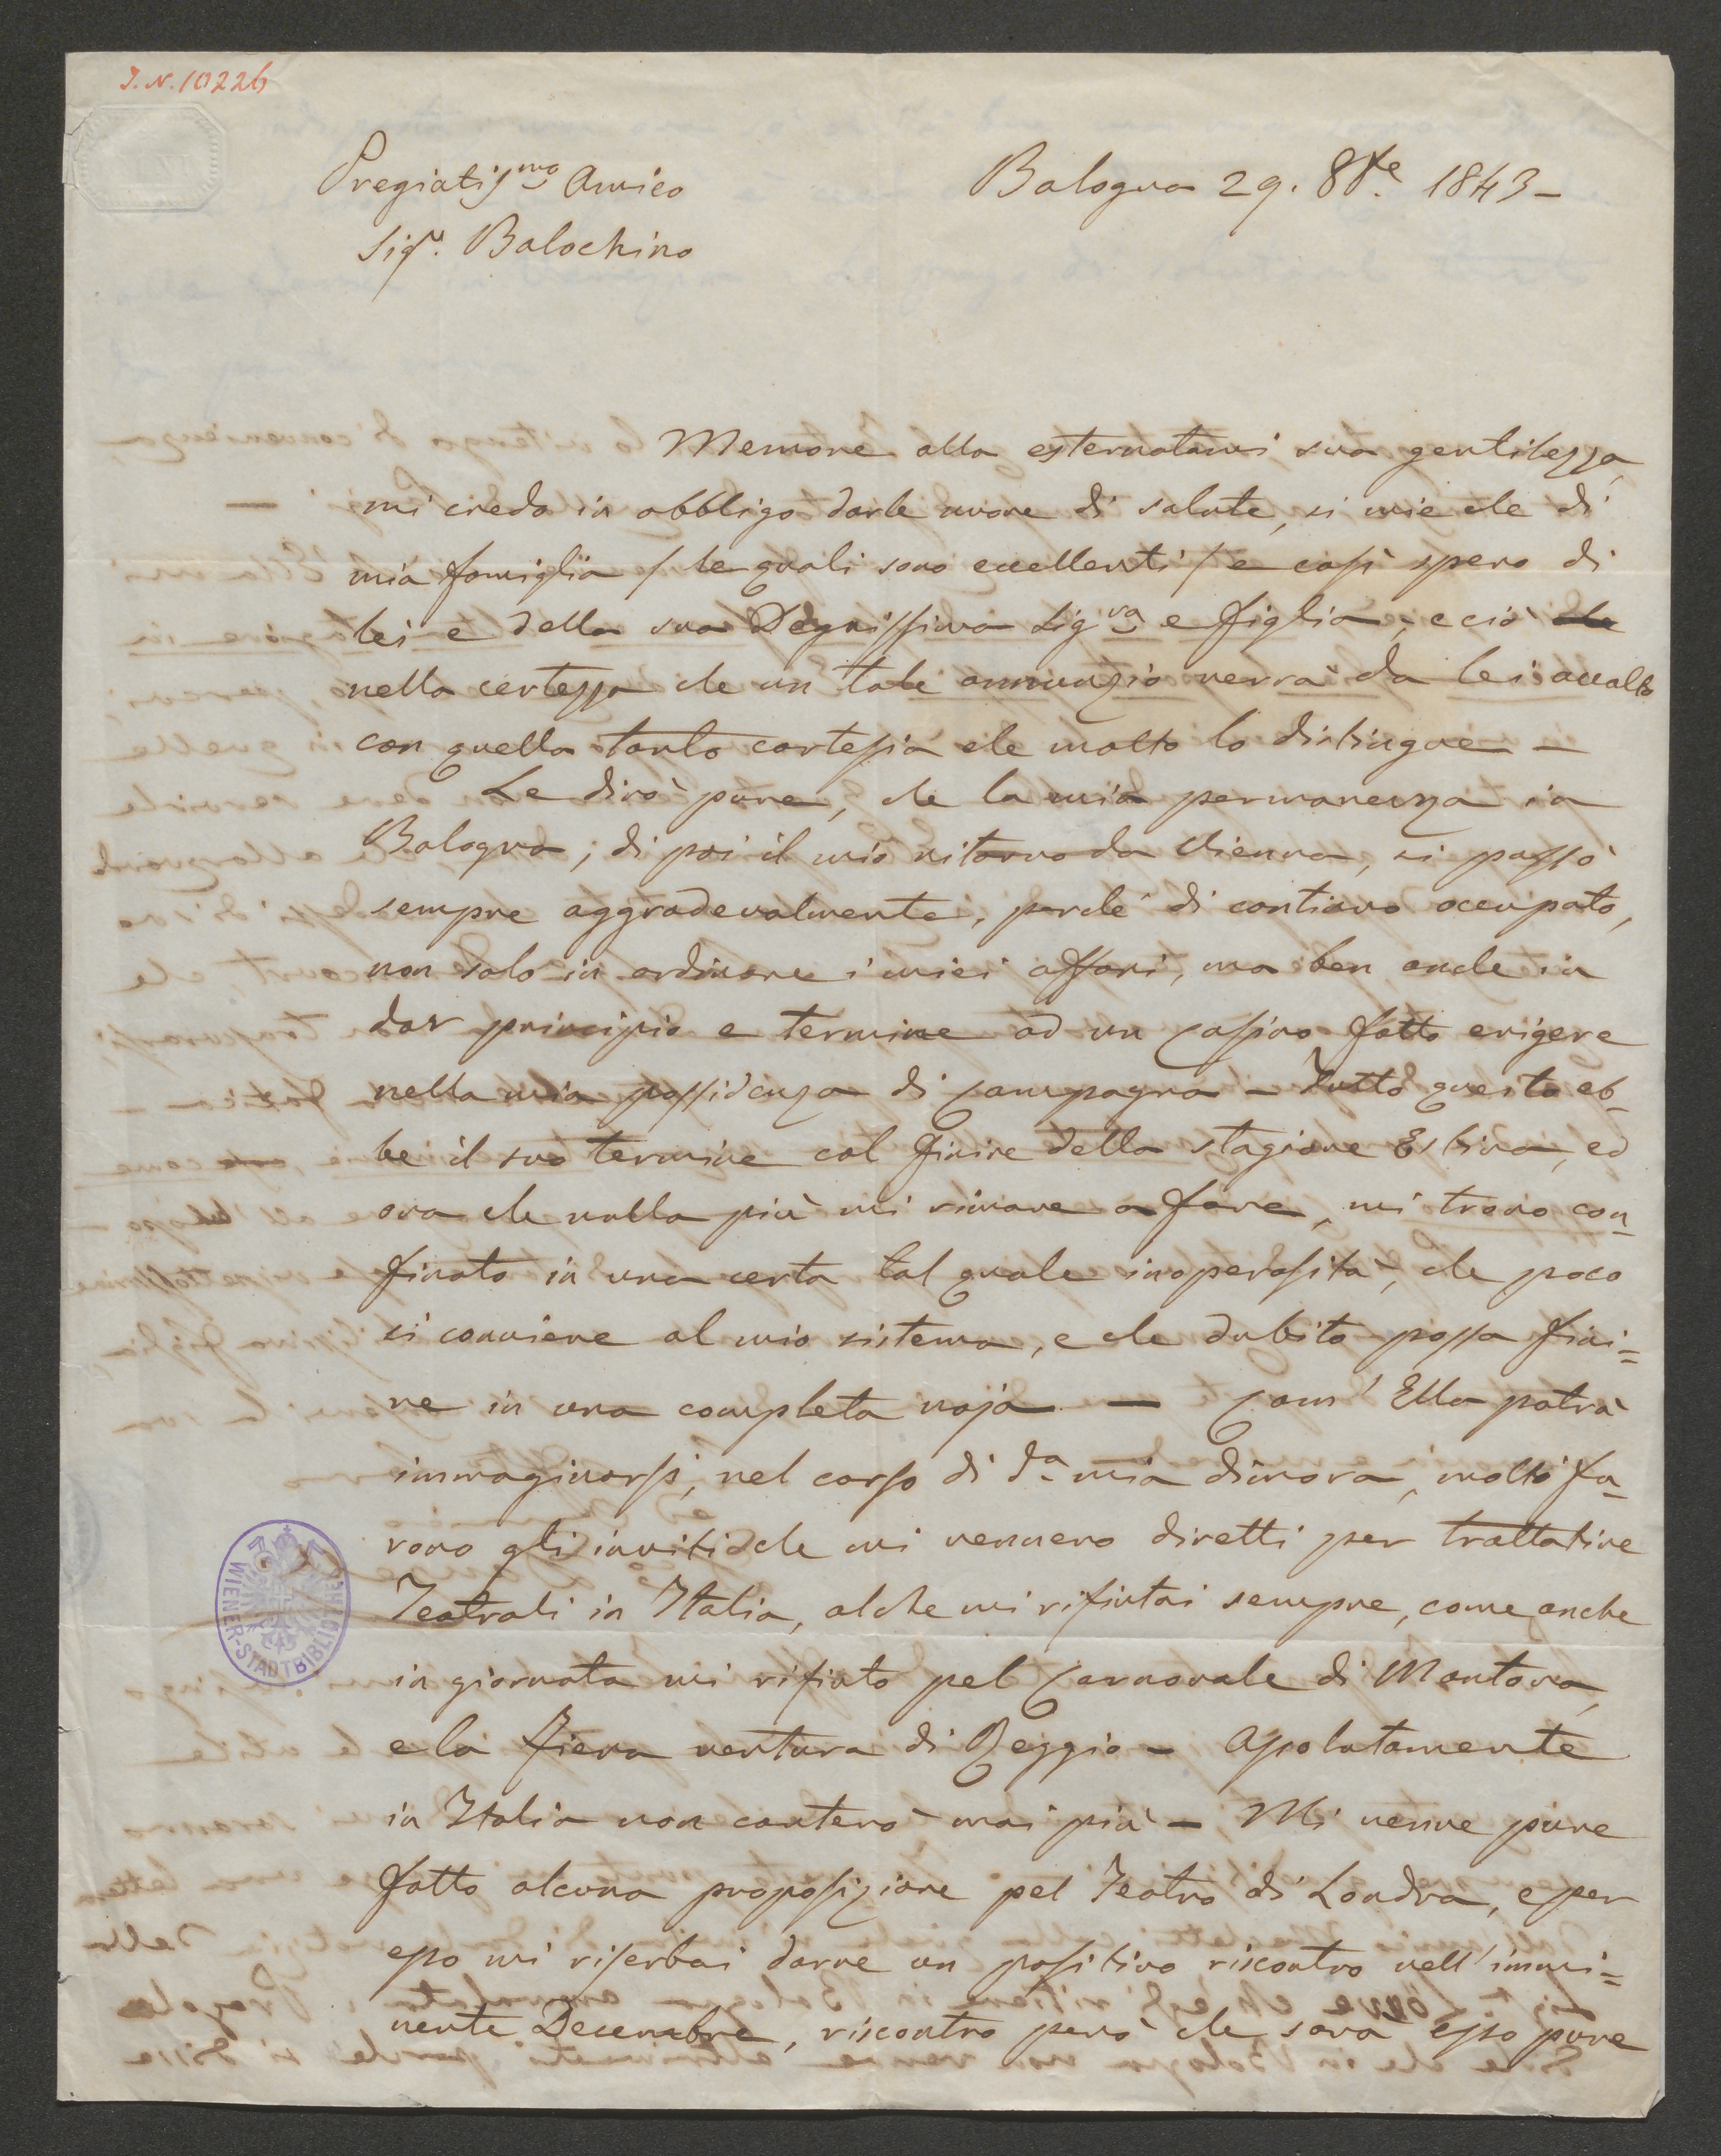 J. N. 10226
Pregiatismo Amico
Bologna 29. 8bre 1843 –
Sigr. Balochino
Memore alla esternatami sua gentilezza,
mi credo in obbligo darle nuove di salute, si mie che di
mia famiglia / le quali sono eccellenti / e così spero di
lei e della sua Degnissima Sigra e figlia, e ciò
nella certezza che un tale annunzio verrà da lei accolto
con quella tanto cortesia che molto lo distingue –
Le dirò pure, che la mia permanenza in
Bologna, di poi il mio ritorno da Vienna, si passò
sempre aggradevolmente, perchè di continuo occupato,
non solo in ordinare i miei affari, ma ben anche in
dar principio e termine ad un Casino fatto erigere
nella mia possidenza di Campagna – Tutto questo eb-
be il suo termine col finire della stagione Estiva, ed
ora che nulla più mi rimane a fare, mi trovo con-
finato in una certa tal quale inoperosità, che poco
si conviene al mio sistema, e che dubito possa fini=
re in una completa noja — Com' Ella potrà
immaginarsi, nel corso di da mia dimora, molti fu-
rono gli inviti che mi vennero diretti per trattative
Teatrali in Italia, al che mi rifiutai sempre, come anche
in giornata mi rifiuto pel Carnovale di Mantova,
e la fiera ventura di Reggio – Assolutamente
in Italia non canterò mai più – Mi venne pure
fatto alcuna proposizione pel Teatro di Londra, e per
esso mi riserbai darne un positivo riscontro nell' immi=
nente Decembre, riscontro però che sarà esso pure
WIENER-STADTBIBLIOTHEK